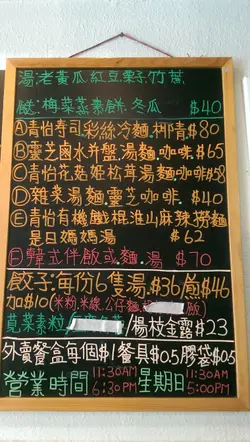 湯:老黃瓜紅豆栗子竹蔗
飯:梅菜蒸素餅.冬瓜 $40
Ⓐ青怡寿司彩絲冷麵.椰青$80
Ⓑ靈芝鹵水拼盤.湯麵.咖啡.$65
Ⓒ青怡花菇姬松茸湯麵咖啡$58
Ⓓ雜菜湯麵.靈芝咖啡.$40
Ⓔ青怡有機鐵棍淮山麻辣撈麵
是日媽媽湯 $62
Ⓕ韓式伴飯或麵.湯 $70
餃子:每份6隻湯$36煎$46
加$10(米粉.米線.公仔麵. 飯)
莧菜素粒 /楊枝金露$23
外賣餐盒每個$1餐具$0.5膠袋$0.5
營業時間 11:30AM 6:30PM 星期日 11:30AM 5:00PM